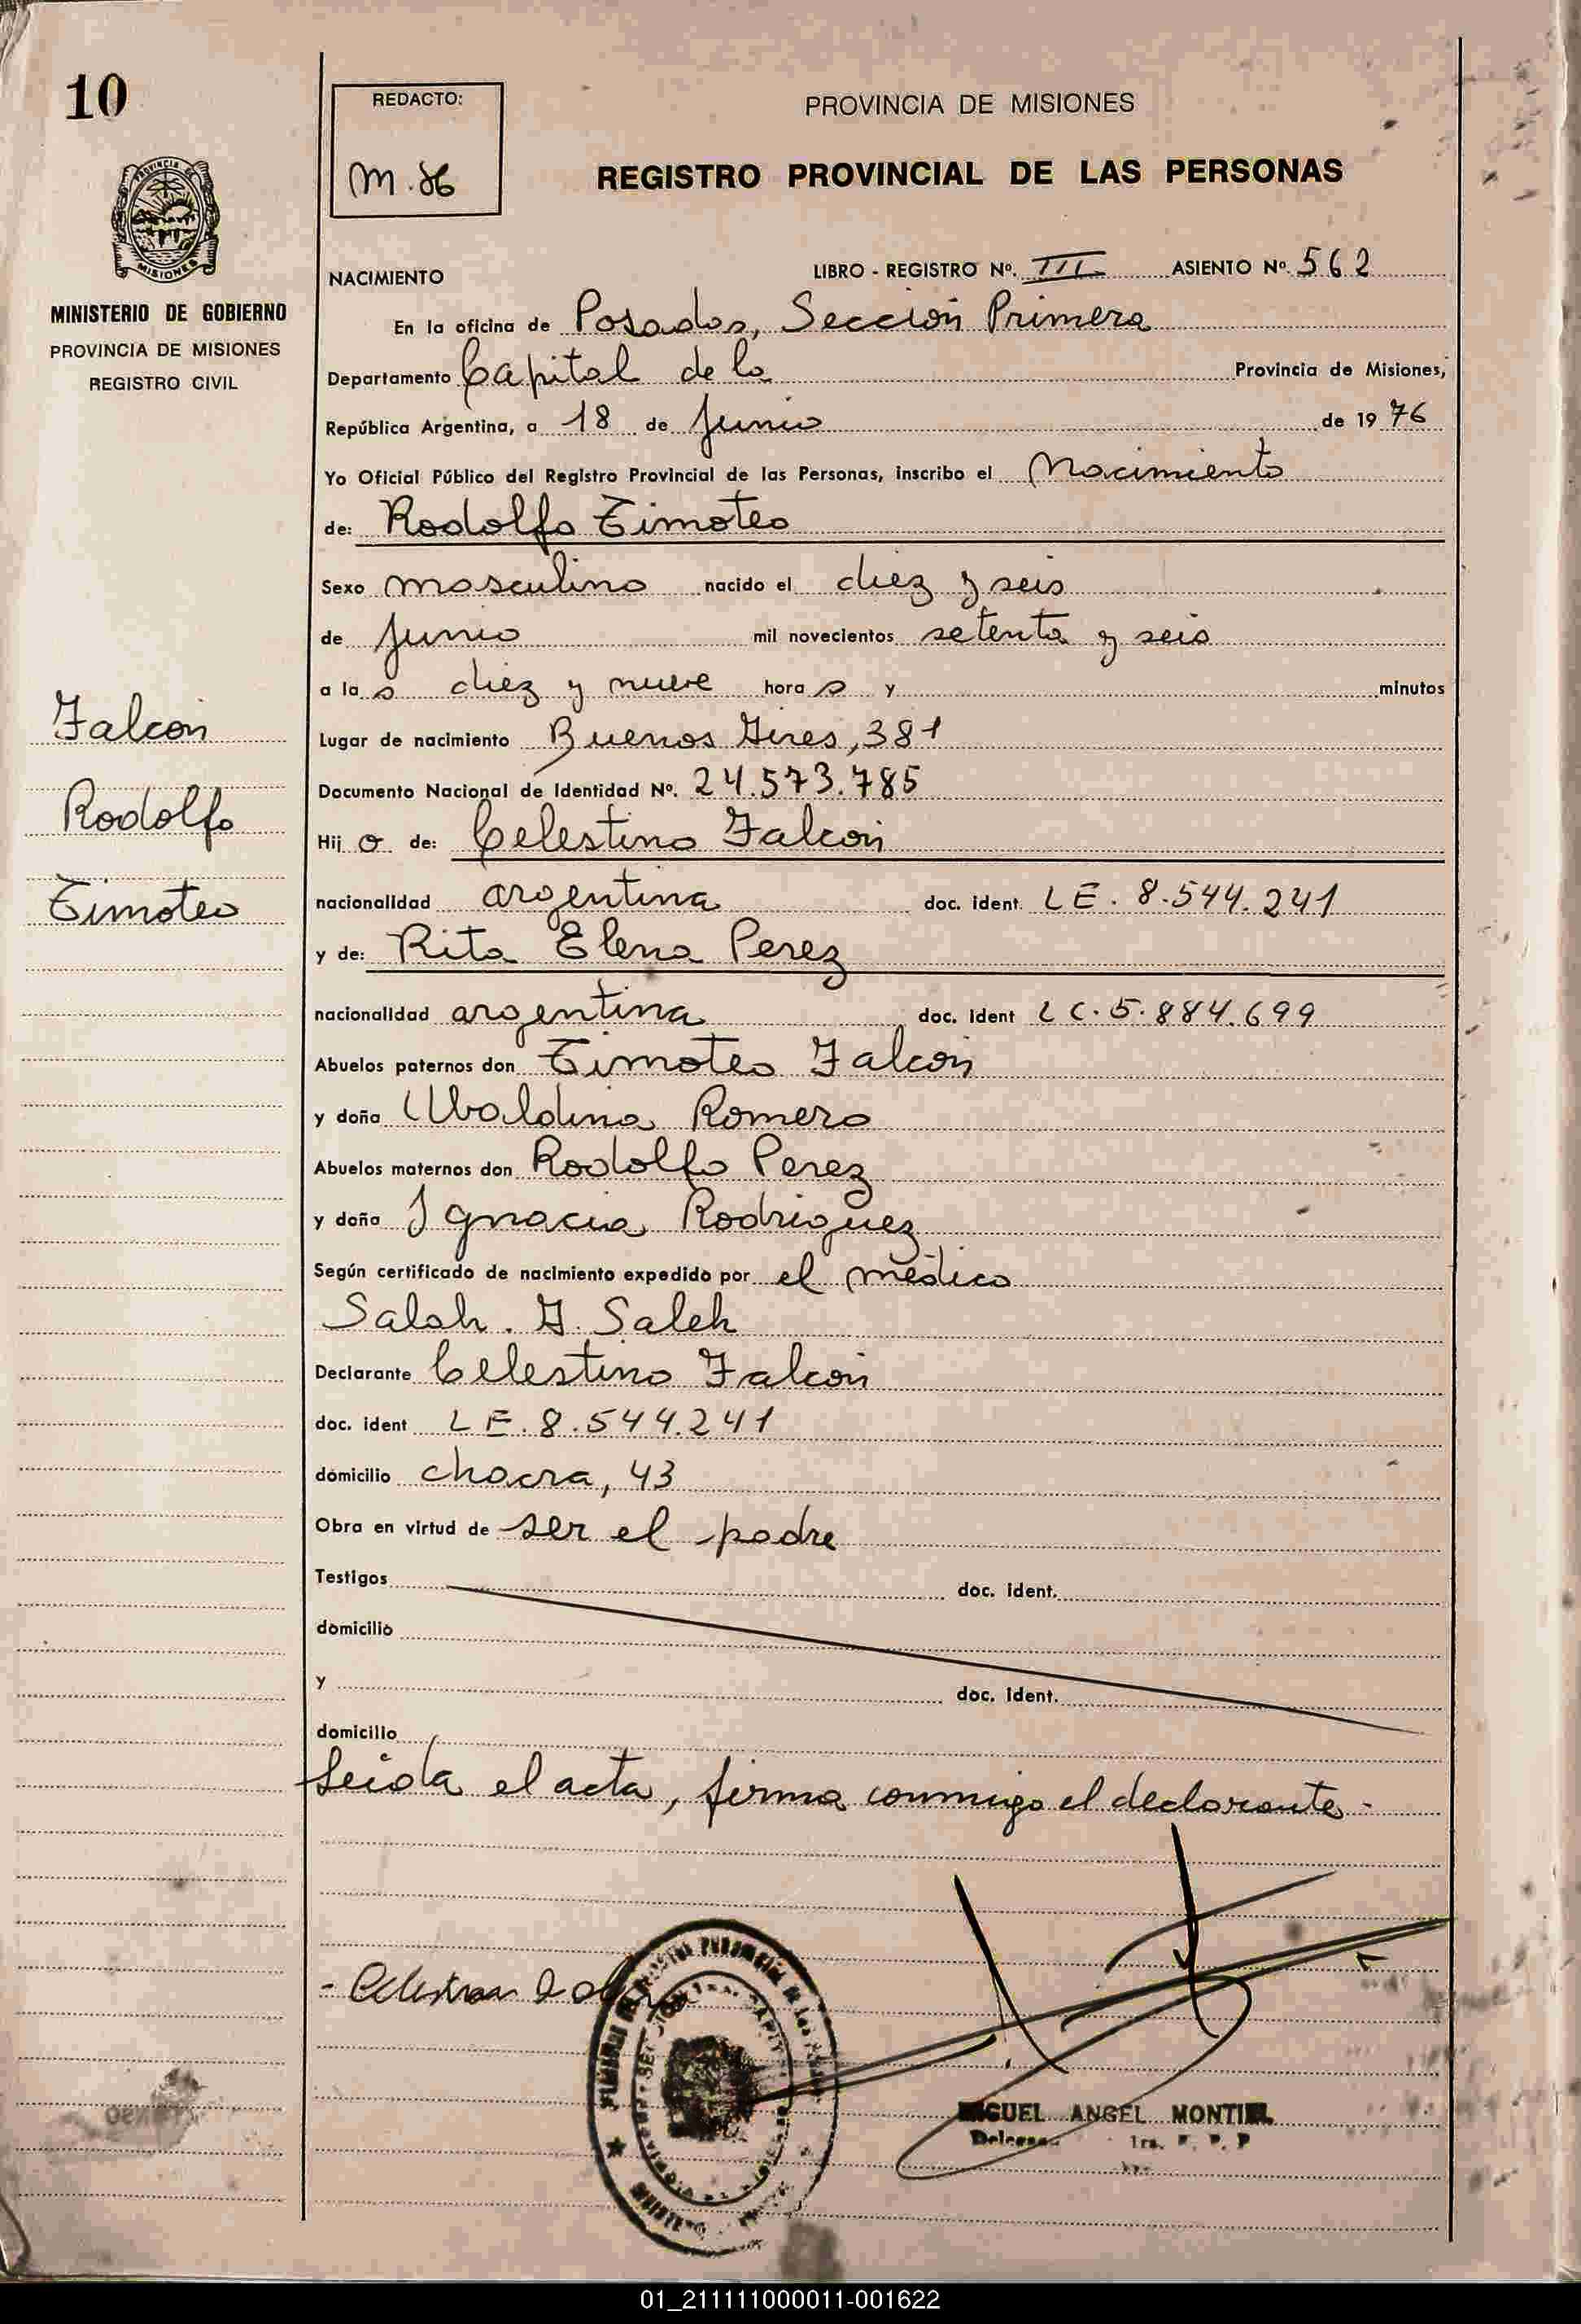 10
PROVINCIA DE
MISIONES
MINISTERIO DE GOBIERNO
PROVINCIA DE MISIONES
REGISTRO CIVIL
Falcon
Rodolfo
Timoteo
REDACTO:
PROVINCIA DE MISIONES
REGISTRO PROVINCIAL DE LAS PERSONAS
NACIMIENTO LIBRO - REGISTRO Nº. III ASIENTO Nº. 562
En la oficina de Posadas, Sección Primera
Departamento Capital de la Provincia de Misiones,
República Argentina, a 18 de Junio de 1976
Yo Oficial Público del Registro Provincial de las Personas, inscribo el Nacimiento
de: Rodolfo Timoteo
Sexo masculino nacido el diez y seis
de Junio mil novecientos setenta y seis
a la s diez y nueve hora s y minutos
Lugar de nacimiento Buenos Aires, 381
Documento Nacional de Identidad Nº. 24.573.785
Hij o de: Celestino Falcón
nacionalidad argentina doc. ident. LE. 8.544.241
y de: Rita Elena Perez
nacionalidad argentina doc. ident LC. 5.884.699
Abuelos paternos don Timoteo Falcón
y doña Ubaldina Romero
Abuelos maternos don Rodolfo Perez
y doña Ignacia Rodriguez
Según certificado de nacimiento expedido por el médico
Salah. G. Saleh
Declarante Celestino Falcón
doc. ident LE. 8.544.241
domicilio chacra, 43
Obra en virtud de ser el padre
Testigos doc. ident.
domicilio
y doc. ident.
domicilio
Leida el acta, firma conmigo el declarante.-
MIGUEL ANGEL MONTIEL
01_211111000011-001622